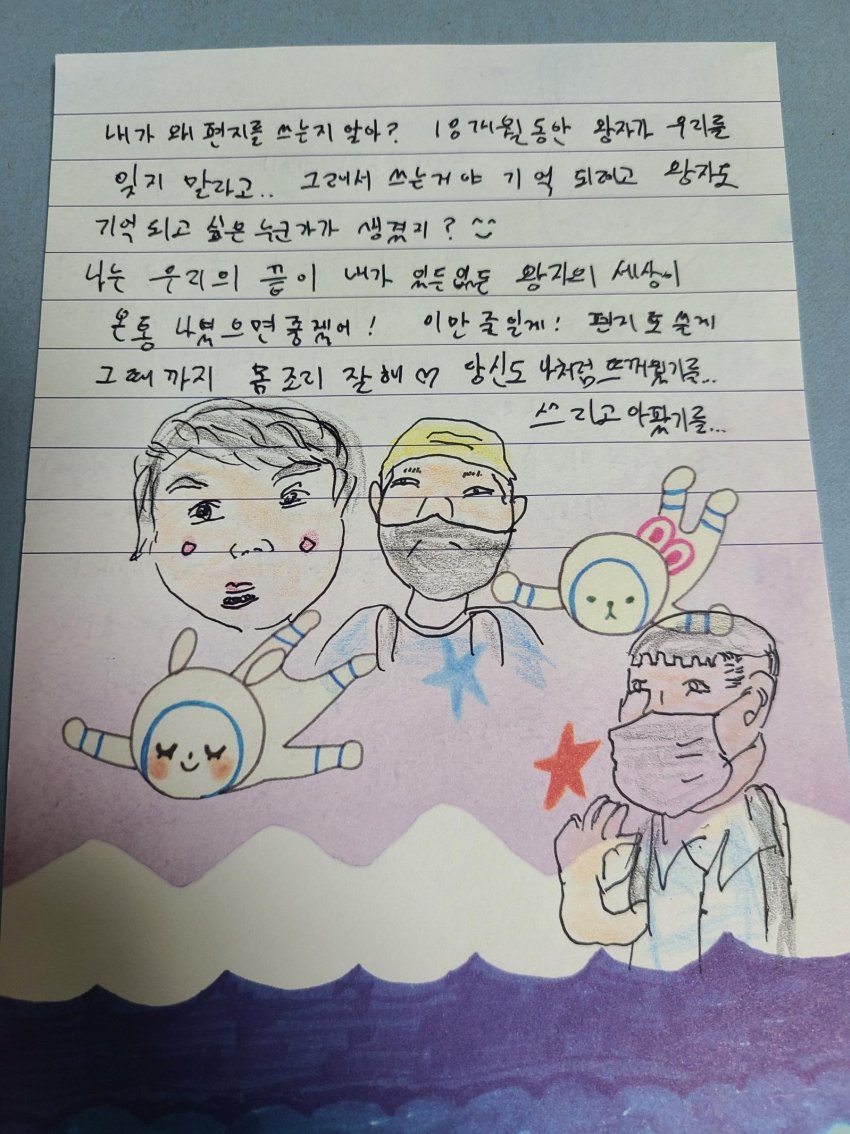 내가 왜 편지를 쓰는지 알아? 18개월동안 왕자가 우리를
잊지 말라고.. 그래서 쓰는거야 기억 되려고 왕자도
기억 되고 싶은 누군가가 생겼지? ^^
나는 우리의 끝이 내가 있든없든 왕자의 세상이
온통 나였으면 좋겠어! 이만 줄일게! 편지 또 쓸게
그때까지 몸 조리 잘해 ♡ 당신도 나처럼 뜨거웠기를...
쓰리고 아팠기를...